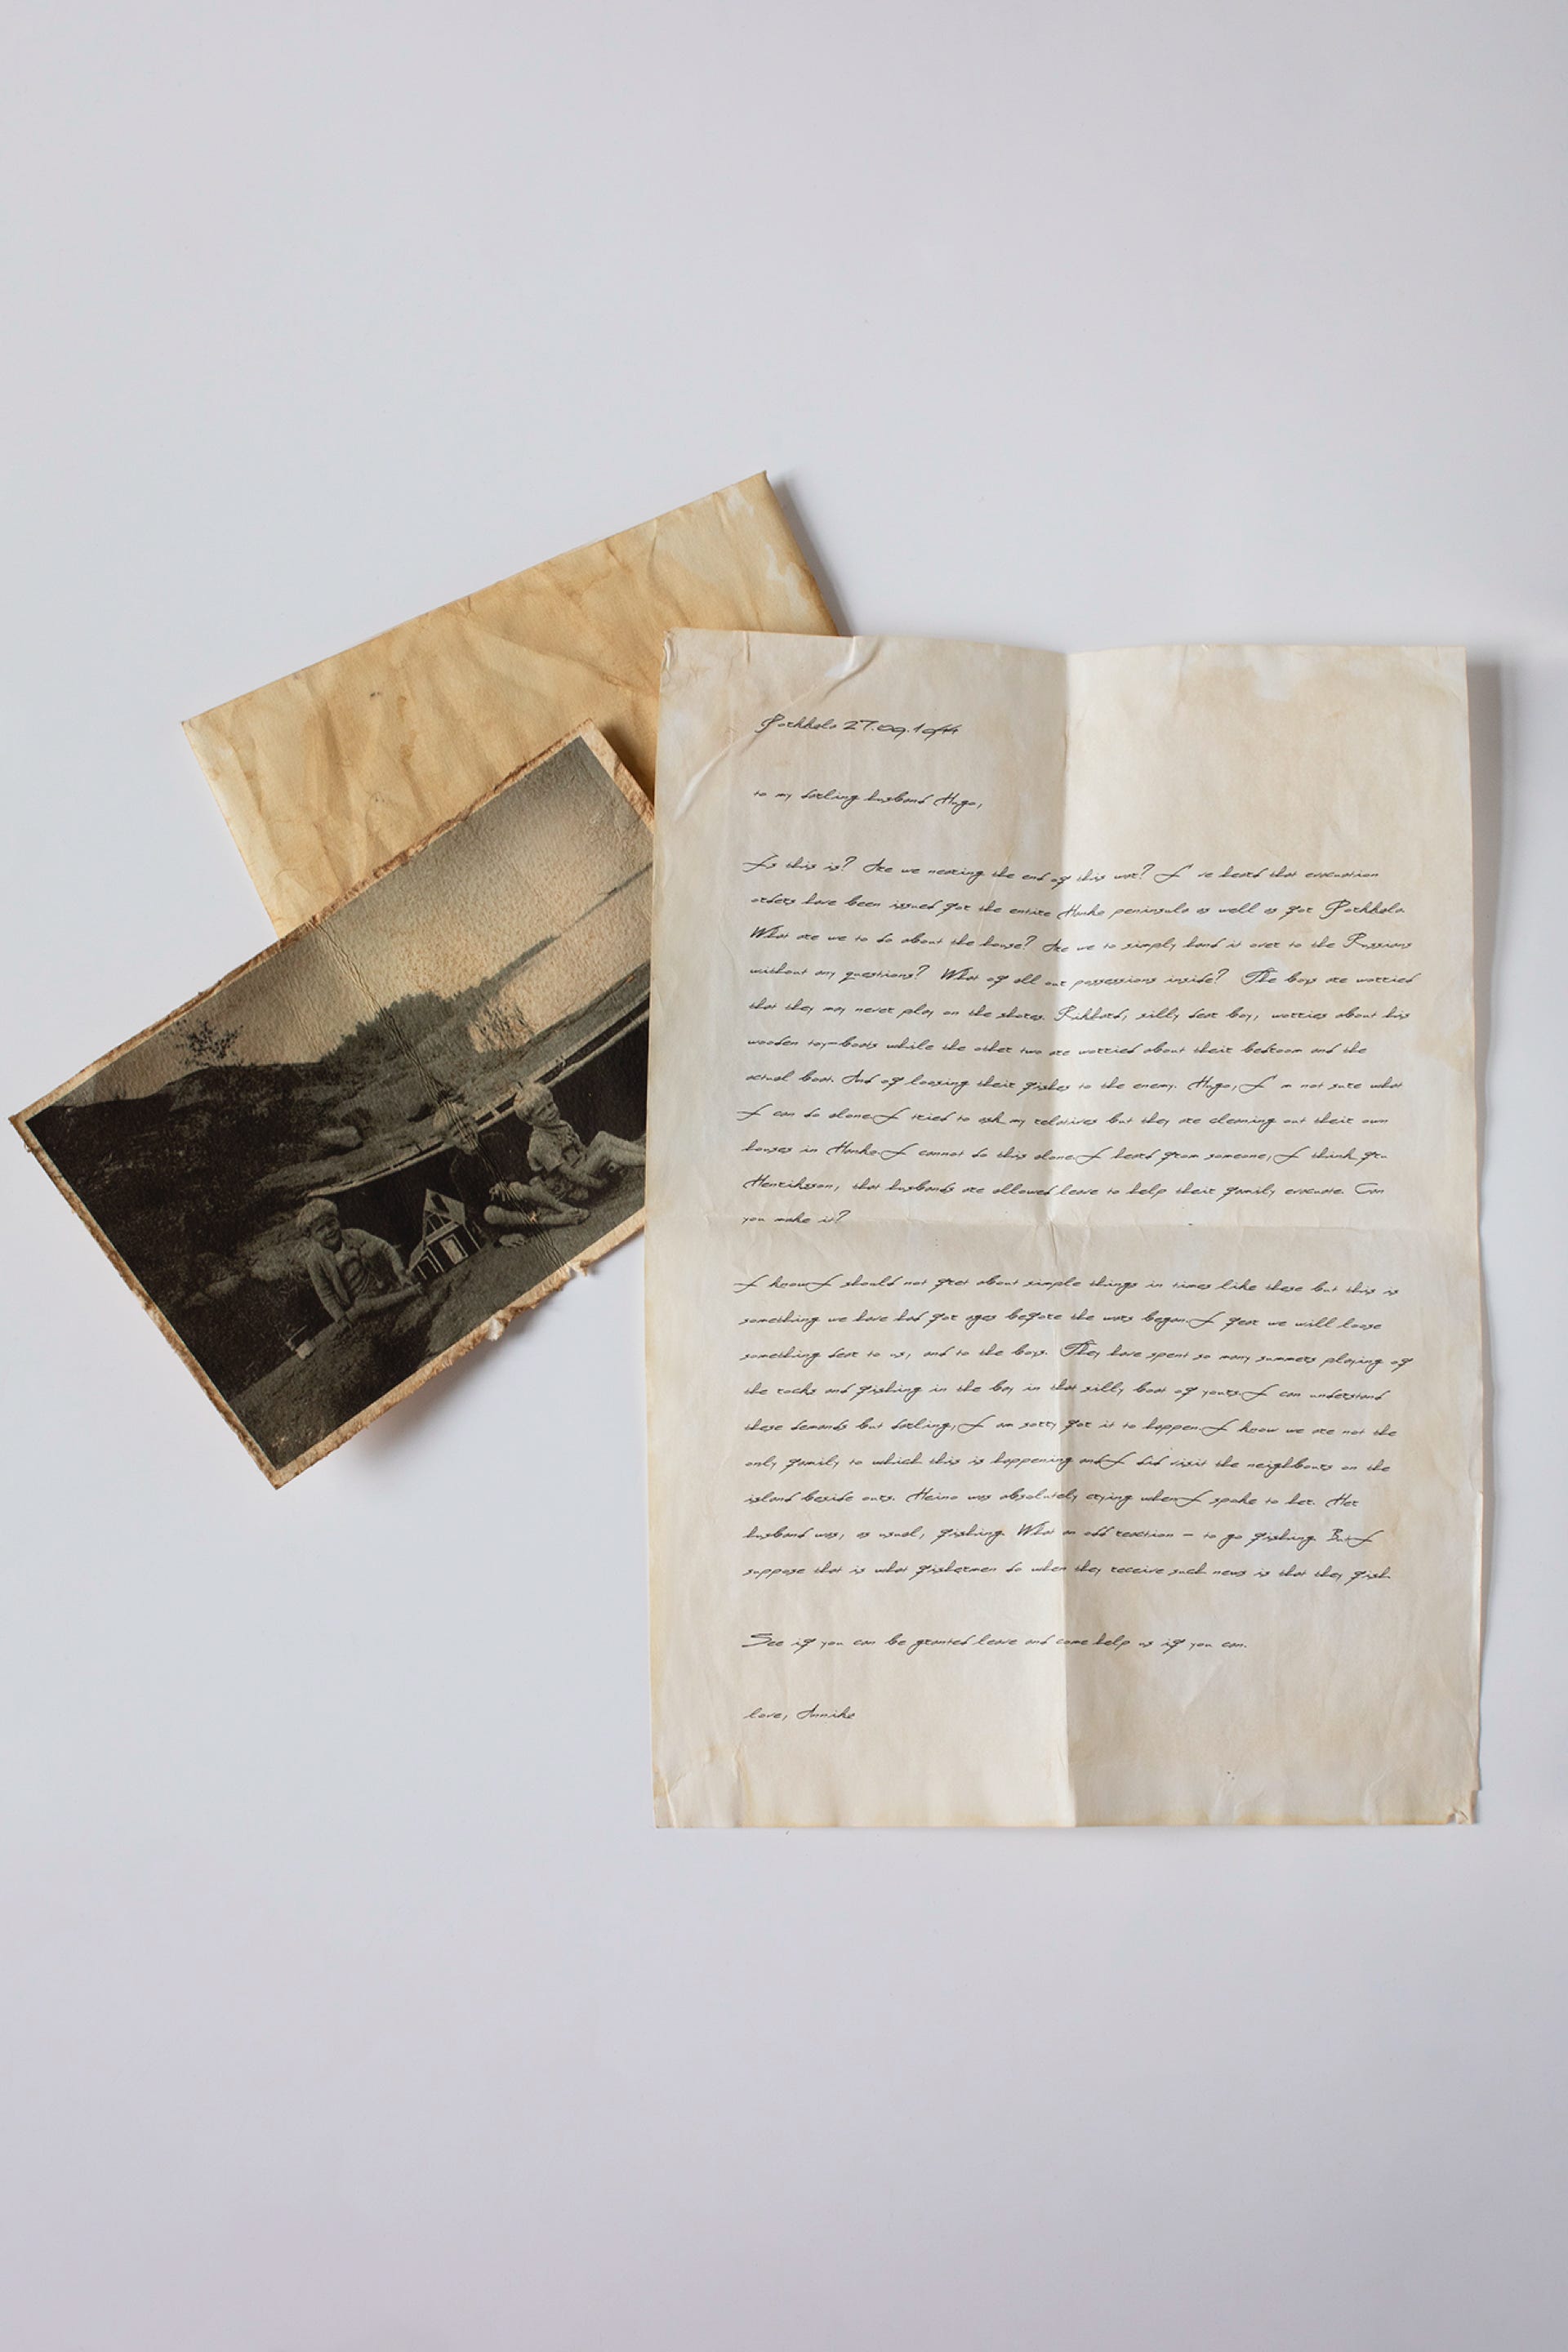 Porkkala 27.09.1944
to my darling husband Hugo,
Is this is? Are we nearing the end of this war? I 've heard that evacuation
orders have been issued for the entire Hanko peninsula as well as for Porkkala.
What are we to do about the house? Are we to simply hand it over to the Russians
without any questions? What of all our possessions inside? The boys are worried
that they may never play on the shores. Rikhard, silly dear boy, worries about his
wooden toy-boats while the other two are worried about their bedroom and the
actual boat. And of loosing their fishes to the enemy. Hugo, I 'm not sure what
I can do alone. I tried to ask my relatives but they are cleaning out their own
houses in Hanko. I cannot do this alone. I heard from someone, I think fru
Henriksson, that husbands are allowed leave to help their family evacuate. Can
you make it?
I know I should not fret about simple things in times like these but this is
something we have had for ages before the wars began. I fear we will loose
something dear to us, and to the boys. They have spent so many summers playing of
the rocks and fishing in the bay in that silly boat of yours. I can understand
these demands but darling, I am sorry for it to happen. I know we are not the
only family to which this is happening and I did visit the neighbours on the
island beside ours. Heino was absolutely crying when I spoke to her. Her
husband was, as usual, fishing. What an odd reaction – to go fishing. But I
suppose that is what fishermen do when they receive such news is that they fish.
See if you can be granted leave and come help us if you can.
love, Annika